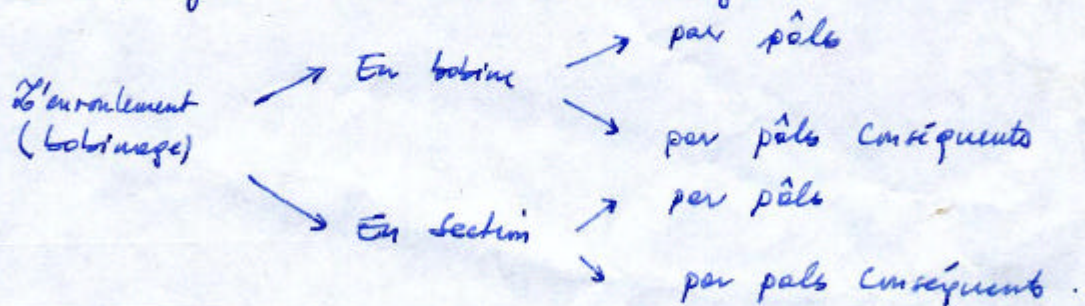 L'enroulement
(bobinage)
En bobine
par pôls
par pôls conséquents
En section
par pôls
par pols conséquents.